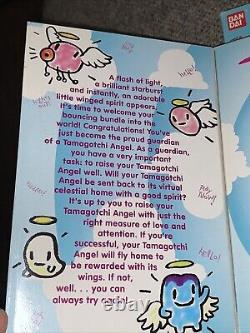 BAN
DAI
A flash of light,
a brilliant starburst
and instantly, an adorable
little winged spirit appears.
It's time to welcome your
bouncing bundle into the
world! Congratulations! You've
just become the proud guardian
of a Tamagotchi Angel. As a guardian,
you have a very important
task: to raise your Tamagotchi
Angel well. Will your Tamagotchi
Angel be sent back to its virtual
celestial home with a good spirit?
It's up to you to raise your
Tamagotchi Angel with just the
right measure of love and
attention. If you're
successful, your Tamagotchi
Angel will fly home to
be rewarded with its
wings. If not,
well. . . you can
always try again!
hello!